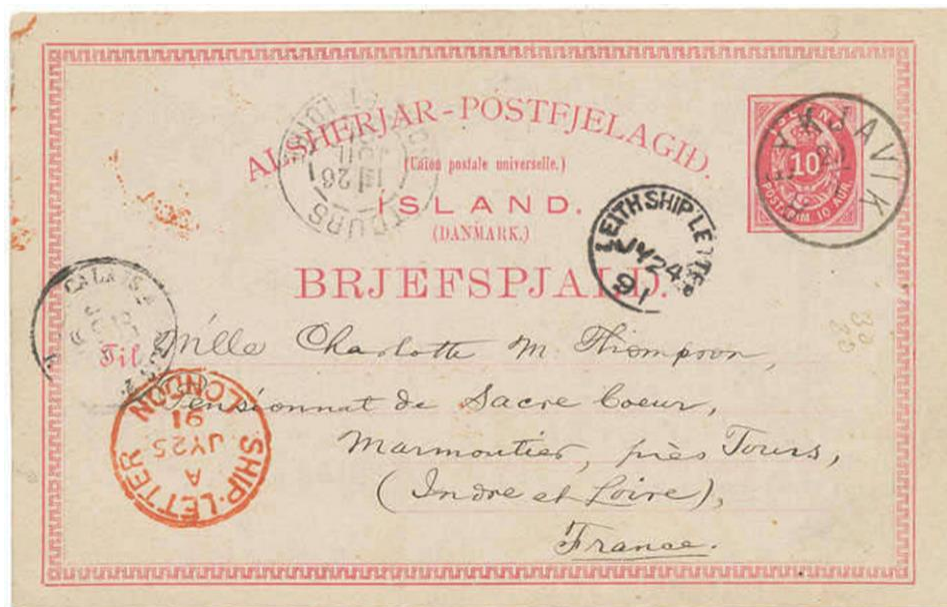 ALSHERJAR-POSTFJELAGIÐ.
(Union postale universelle.)
ÍSLAND.
(DANMARK.)
BRJEFSPJALD.
10
POSTFRIM 10 AUR.
YKJAVIK
LEITH SHIP LETTER
JY 24
91
TOURS
26
CALAIS A
SHIP-LETTER
A
JY 25
91
LONDON
Til Mlle Charlotte M Thompson,
Pensionnat de Sacre Coeur,
Marmoutier, près Tours,
(Indre et Loire),
France.